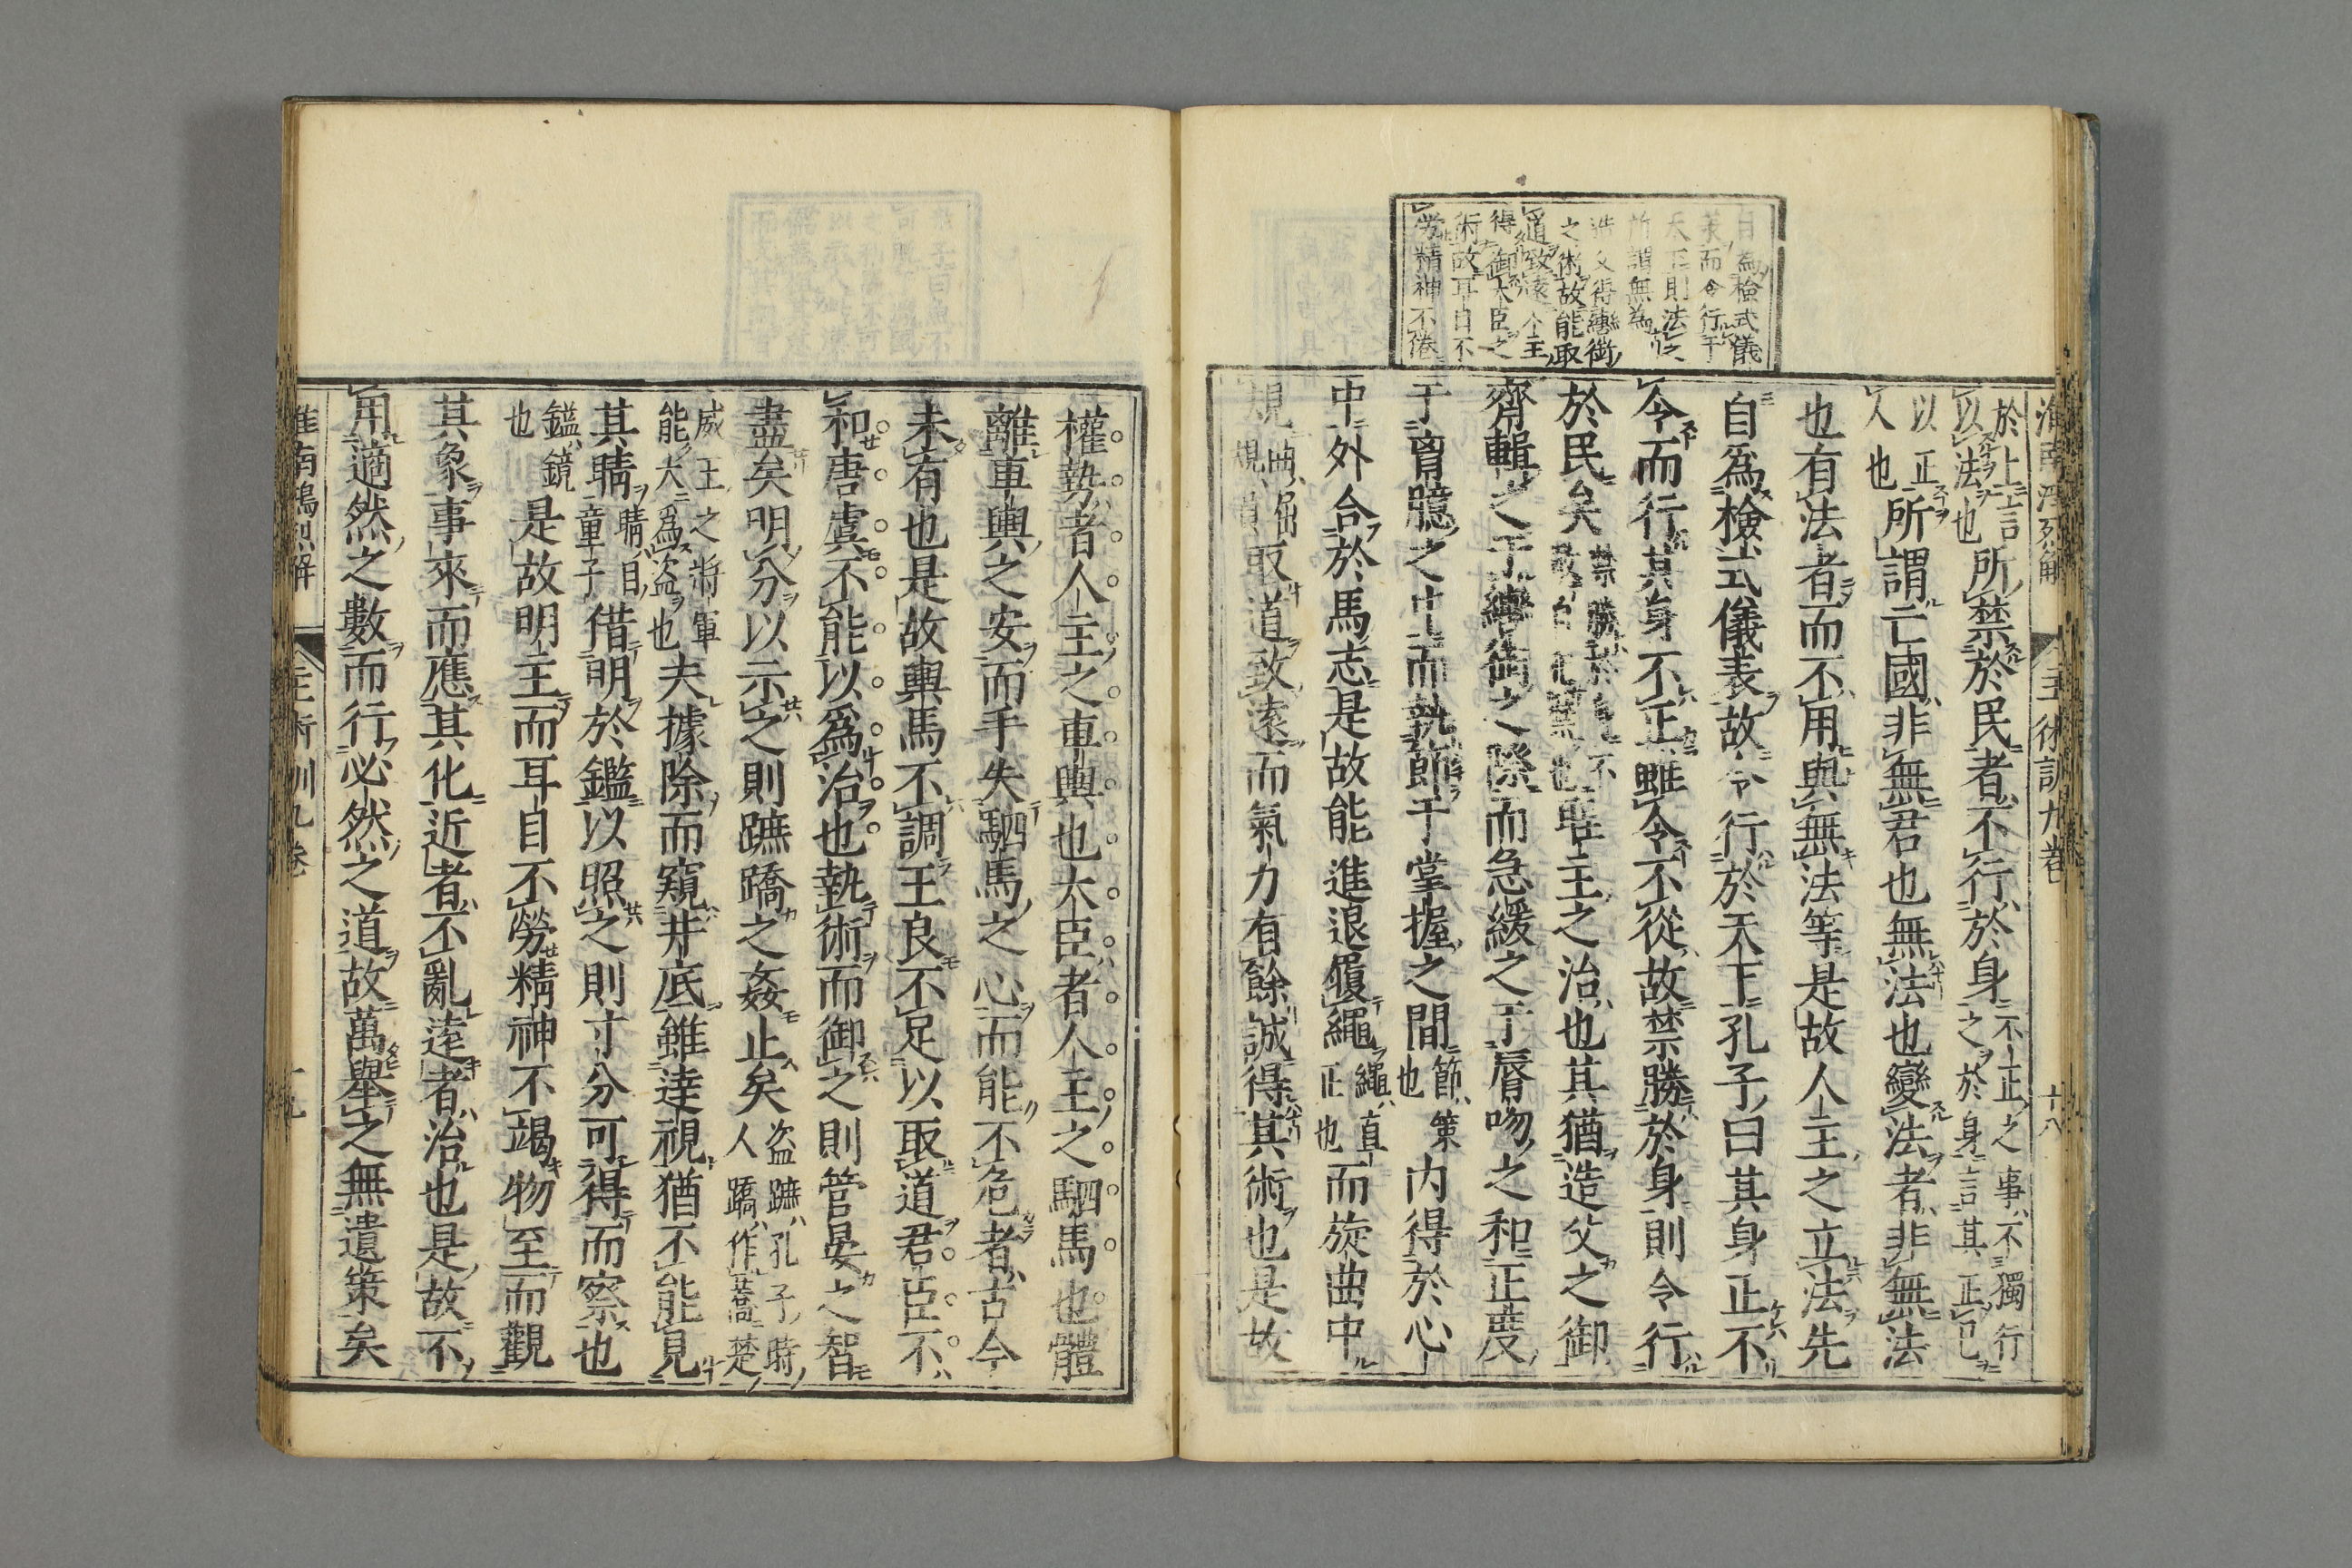 自為檢式儀
表而令行于
天下則法之
所謂無為
造父得轡銜
之術故能取
道致遠人主
得御大臣之
術故耳目不
勞精神不倦
主術訓九卷 十八
於上言以法也所禁於民者不行於身不正之事不獨行之於身言其正己
以正人也所謂亡國非無君也無法也變法者非無法
也有法者而不用與無法等是故人主之立法先
自爲檢式儀表故令行於天下孔子曰其身正不
令而行其身不正雖令不從故禁勝於身則令行
於民矣禁勝於身不敢自犯禁也聖主之治也其猶造父之御
齊輯之于轡銜之際而急緩之于脣吻之和正度
于胷臆之中而執節于掌握之間節策也内得於心
中外合於馬志是故能進退履繩繩直正也而旋曲中
規曲屈規員取道致遠而氣力有餘誠得其術也是故
權勢者人主之車輿也大臣者人主之駟馬也體
離車輿之安而手失駟馬之心而能不危者古今
未有也是故輿馬不調王良不足以取道君臣不
和唐虞不能以爲治也執術而御之則管晏之智
盡矣明分以示之則蹠蹻之姦止矣盗蹠孔子時人蹻作䓤楚
威王之將軍能大爲盗也夫據除而窺井底雖逹視猶不能見
其睛睛目童子借明於鑑以照之則寸分可得而察也
鎰鏡也是故明主而耳目不勞精神不竭物至而觀
其象事來而應其化近者不亂逺者治也是故不
用適然之數而行必然之道故萬舉之無遺策矣
淮南鴻烈解 主術訓九卷 十九